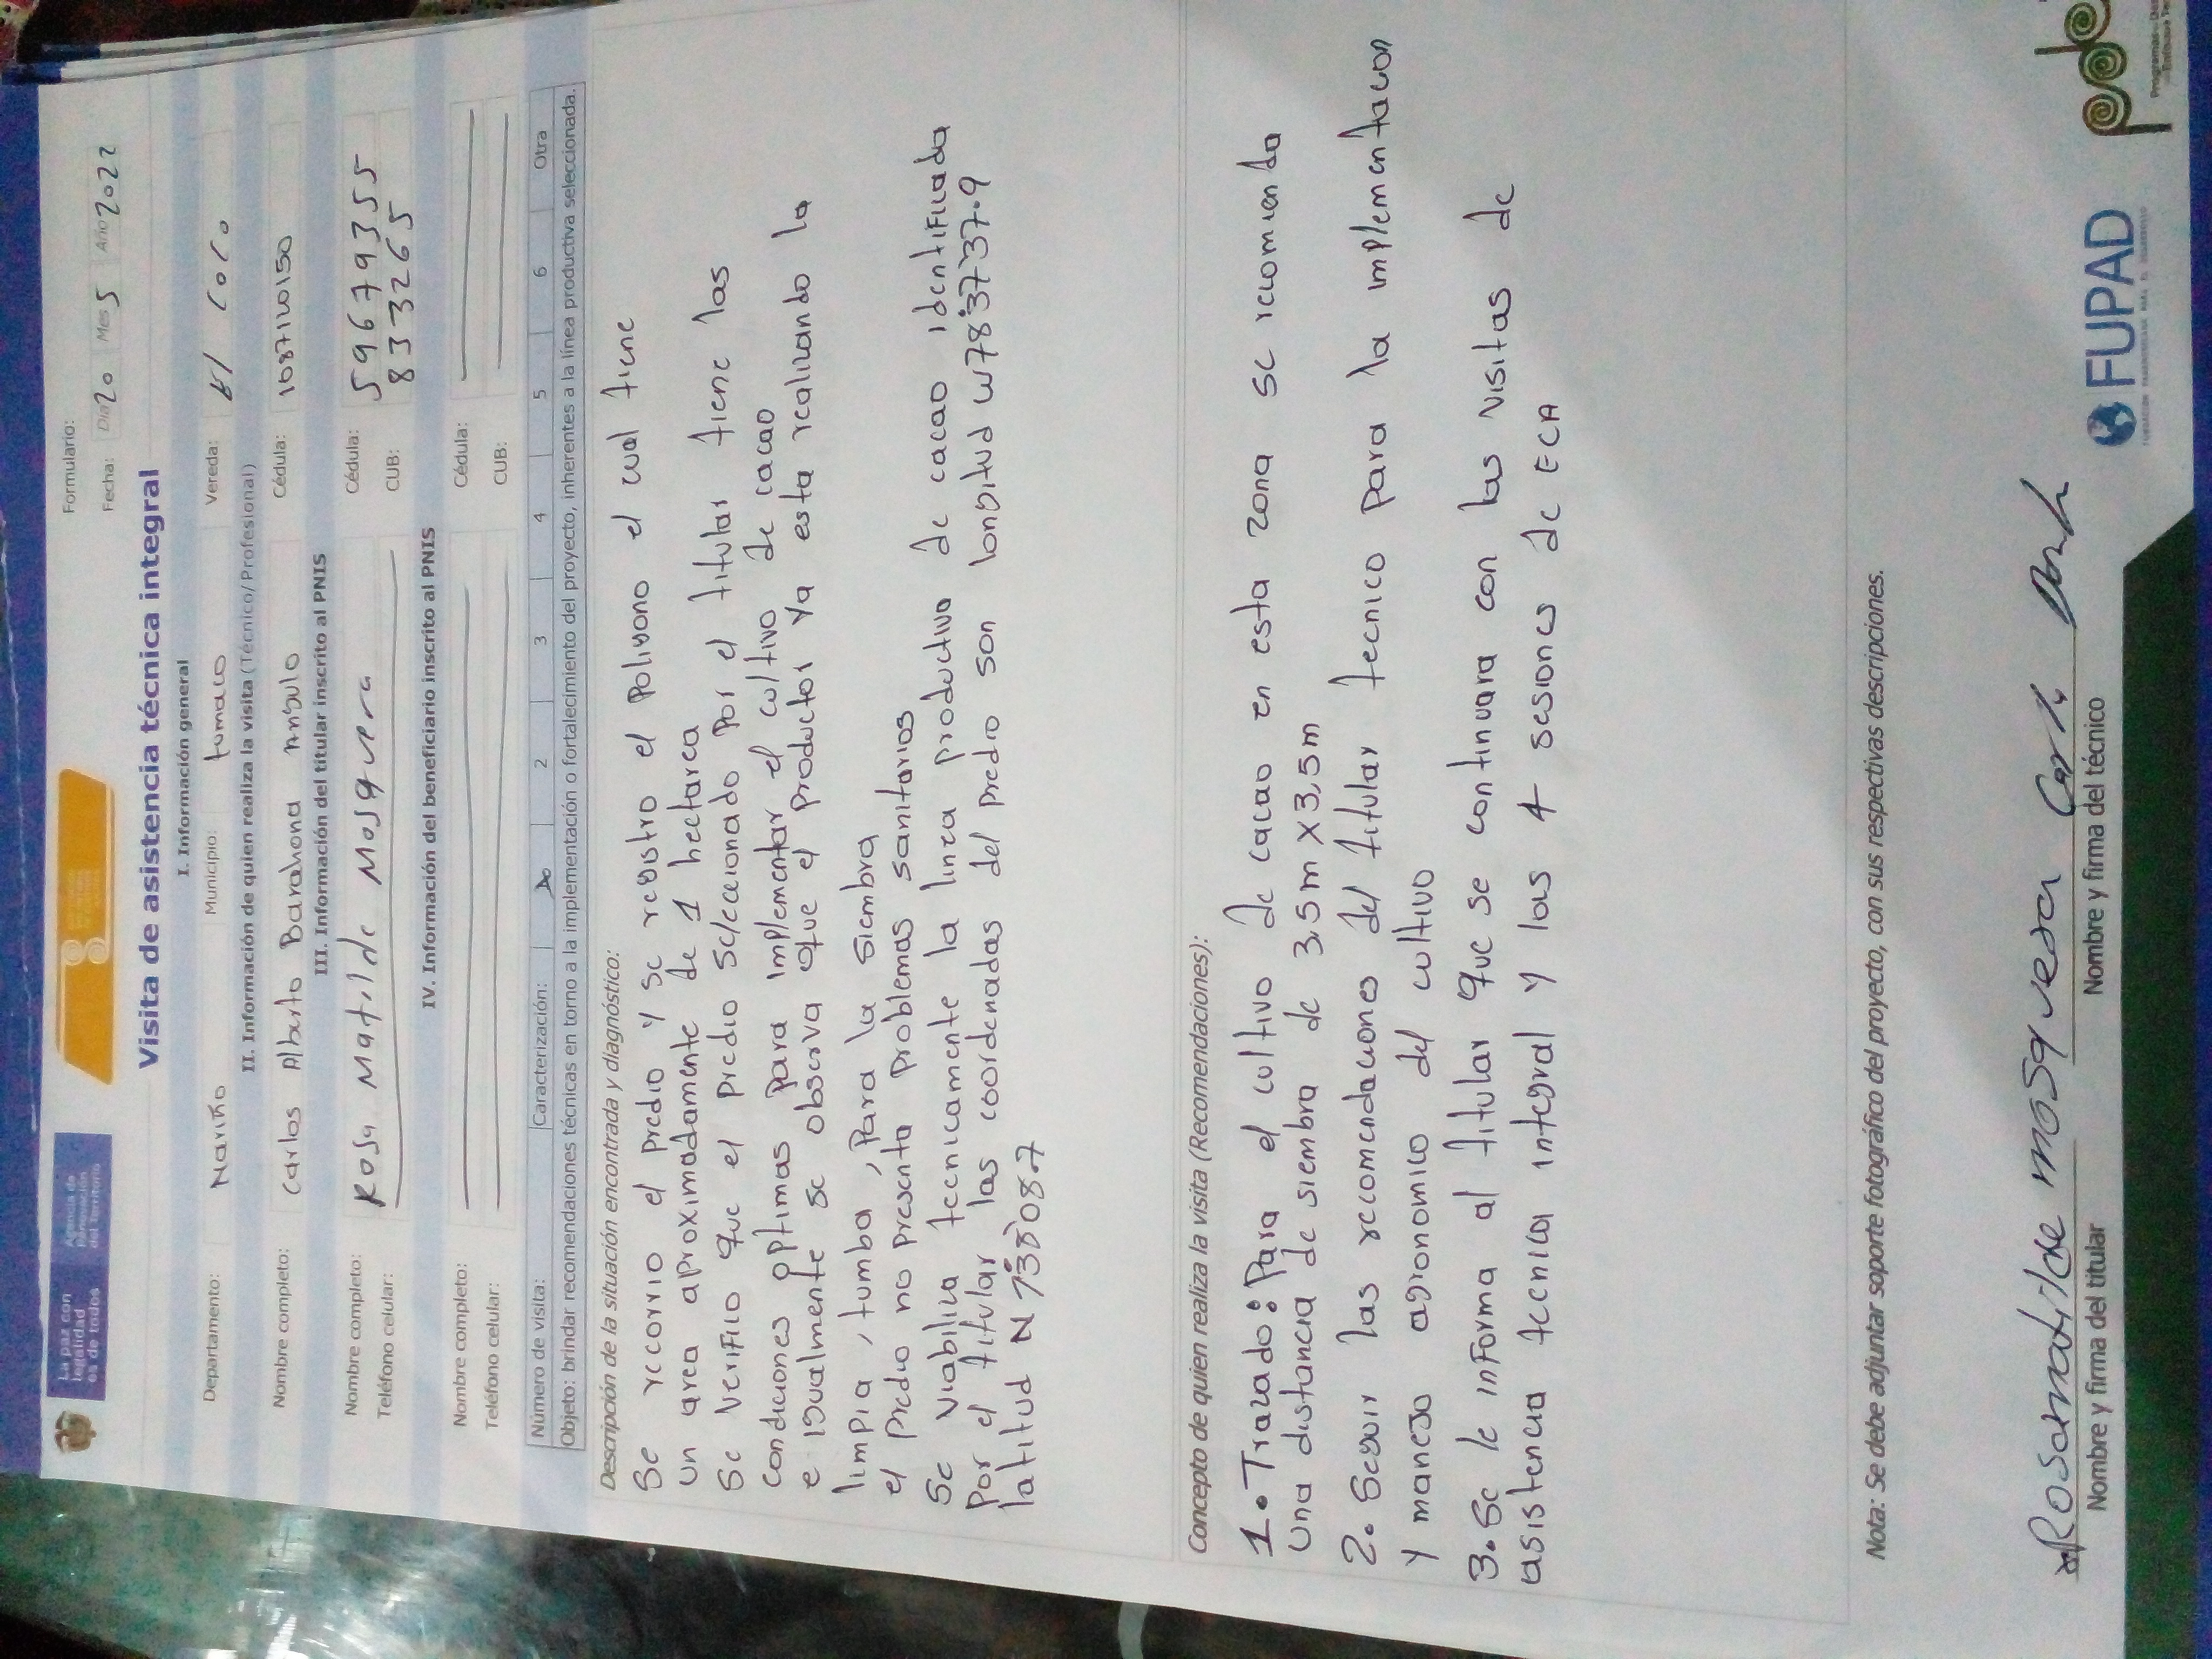 La paz con
legalidad
es de todos
Agencia de
Renovación
del Territorio
Formulario:
Fecha: Día 20 Mes 5 Año 2022
Visita de asistencia técnica integral
I. Información general
Departamento: Nariño Municipio: tumaco Vereda: El Coco
II. Información de quien realiza la visita (Técnico/Profesional)
Nombre completo: Carlos Alberto Barahona Angulo Cédula: 1087120150
III. Información del titular inscrito al PNIS
Nombre completo: Rosa Matilde Mosquera Cédula: 59679355
Teléfono celular: CUB: 8333265
IV. Información del beneficiario inscrito al PNIS
Nombre completo: Cédula:
Teléfono celular: CUB:
Número de visita: Caracterización: 2 3 4 5 6 Otra
Objeto: brindar recomendaciones técnicas en torno a la implementación o fortalecimiento del proyecto, inherentes a la línea productiva seleccionada.
Descripción de la situación encontrada y diagnóstico:
Se recorrio el predio y se registro el Poligono el cual tiene
un area aproximadamente de 1 hectarea
Se verifico que el predio seleccionado por el titular tiene las
condiciones optimas para implementar el cultivo de cacao
e igualmente se observa que el productor ya esta realizando la
limpia, tumba, para la siembra
el predio no presenta problemas sanitarios
Se viabiliza tecnicamente la linea productiva de cacao identificada
por el titular las coordenadas del predio son longitud W78°37'37.9
latitud N
Concepto de quien realiza la visita (Recomendaciones):
1. Trazado: Para el cultivo de cacao en esta zona se recomienda
Una distancia de siembra de 3.5m X 3,5m
2. Seguir las recomendaciones del titular tecnico para la implementacon
y manejo agronomico del cultivo
3. Se le informa al titular que se continuara con las visitas de
asistencia tecnica integral y las 4 sesiones de ECA
Nota: Se debe adjuntar soporte fotográfico del proyecto, con sus respectivas descripciones.
Rosa matilde mosquera
Nombre y firma del titular
Nombre y firma del técnico
FUPAD